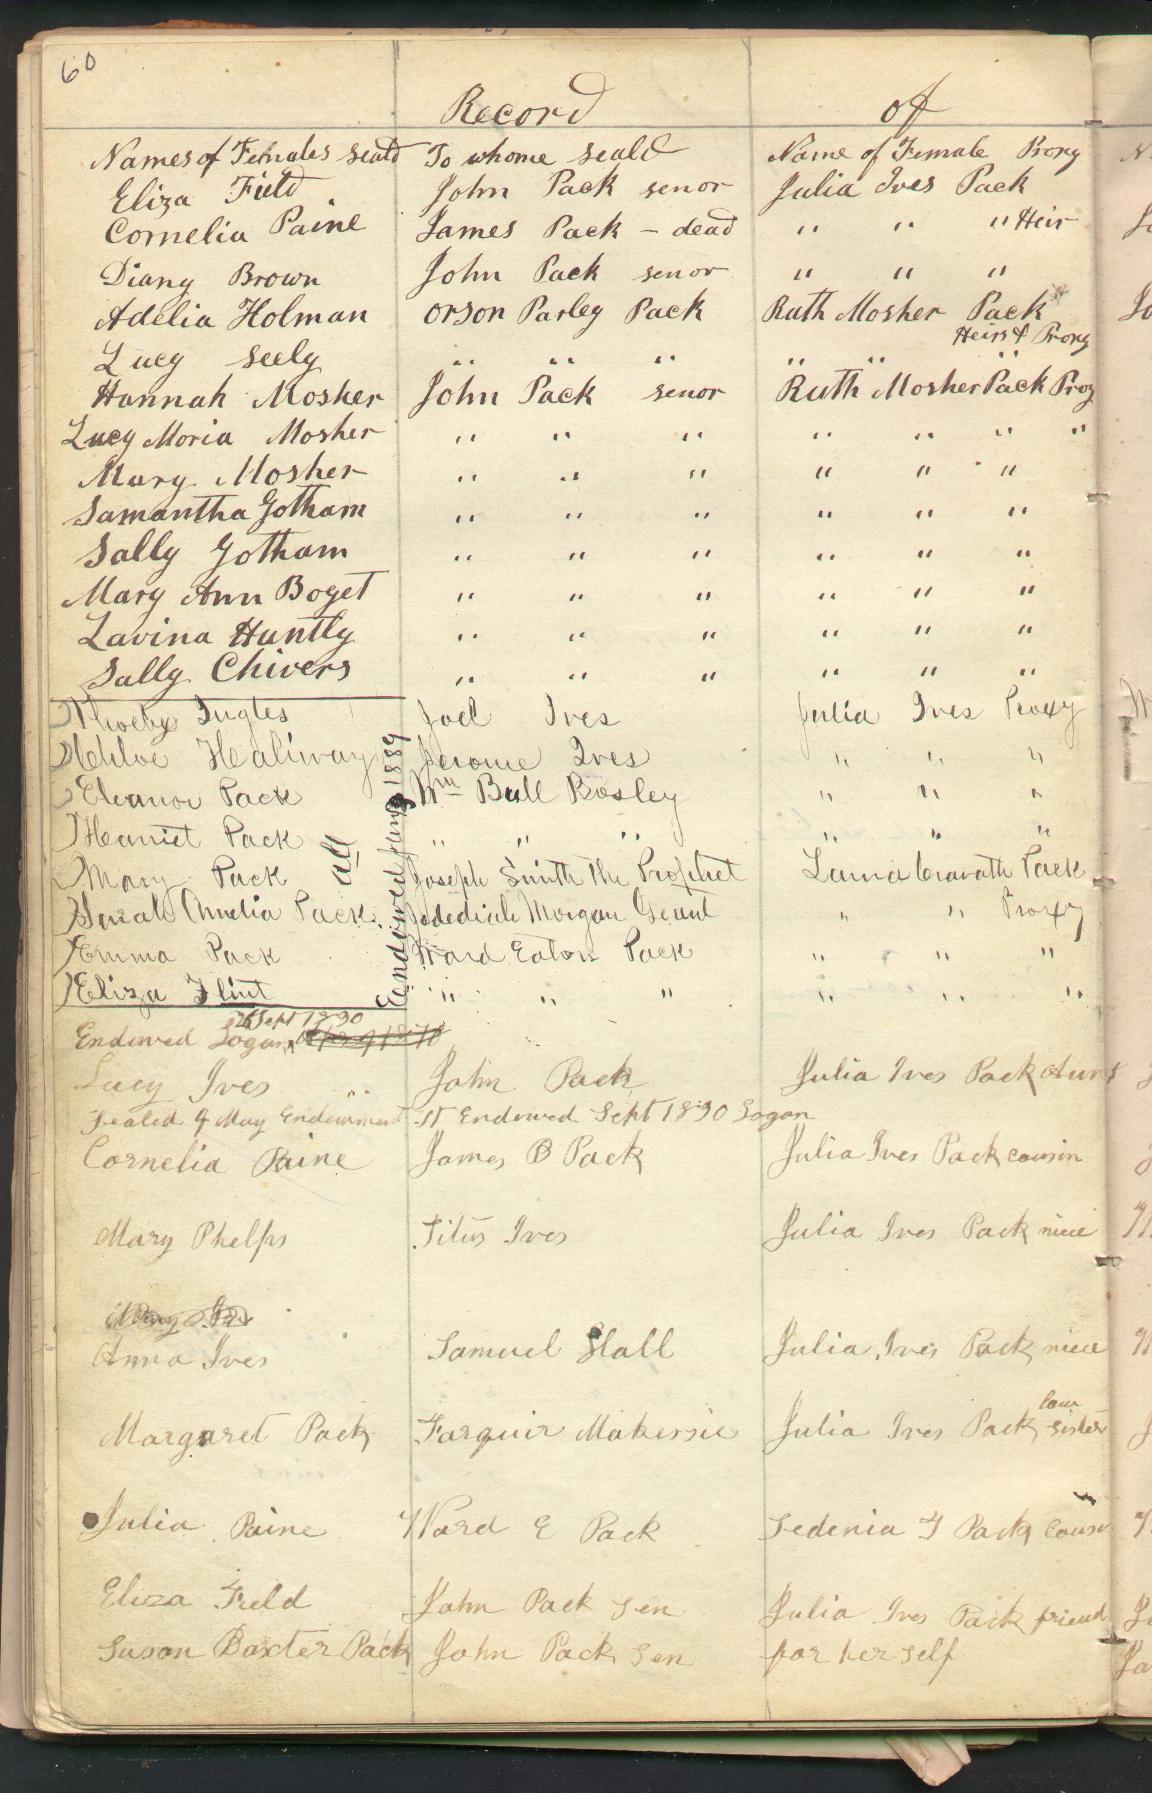 60
Record of
Names of Females seald To whome seald Name of Female Proxy
Eliza Field John Pack senor Julia Ives Pack
Cornelia Paine James Pack - dead " " " Heir
Diany Brown John Pack senor " " "
Adelia Holman Orson Parley Pack Ruth Mosher Pack
Heirs & Proxy
Lucy Seely " " " " " "
Hannah Mosher John Pack senor Ruth Mosher Pack Proxy
Lucy Moria Mosher " " " " " " "
Mary Mosher " " " " " "
Samantha Gotham " " " " " "
Sally Gotham " " " " " "
Mary Ann Boget " " " " " "
Lavina Huntly " " " " " "
Sally Chivers " " " " " "
Phoeby Ingles Joel Ives Julia Ives Proxy
Chloe Heliway Jerome Ives " " "
Eleanor Pack Wm Bull Bosley " " "
Harriet Pack " " " " " "
Mary Pack Joseph Smith The Prophet Laura Cravath Pack
Sarah Amelia Pack Jedediah Morgan Grant " " Proxy
Emma Pack Ward Eaton Pack " " "
Eliza Flint " " " " " "
All
Endowed 1889
26 Sept 1890
Endowed Logan
Lucy Ives John Pack Julia Ives Pack Aunt
Sealed 9 May Endowment St Endowed Sept 1890 Logan
Cornelia Paine James B Pack Julia Ives Pack cousin
Mary Phelps Titus Ives Julia Ives Pack niece
Anna Ives Samuel Hall Julia Ives Pack niece
law
Margaret Pack Farquir Makersie Julia Ives Pack sister
Julia Paine Ward E Pack Sedenia T Pack cousn
Eliza Field John Pack Sen Julia Ives Pack friend
Susan Baxter Pack John Pack Sen for her self